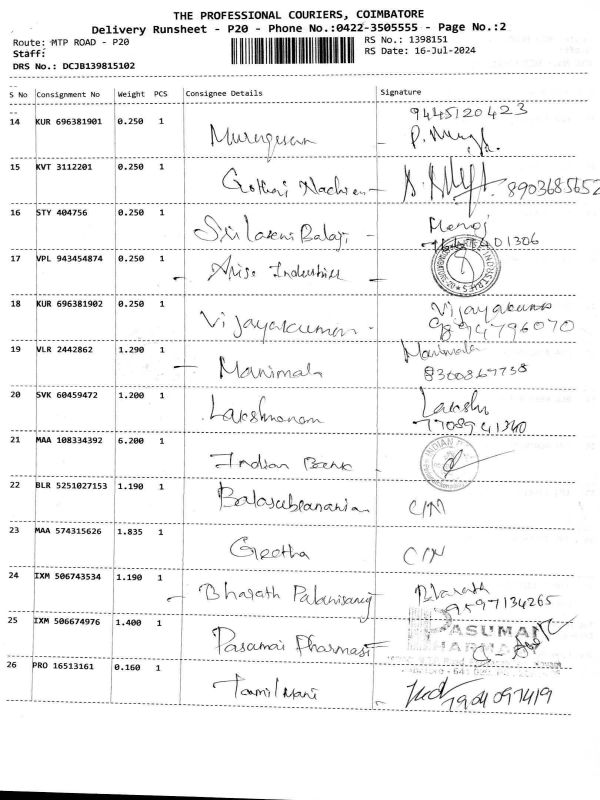 THE PROFESSIONAL COURIERS, COIMBATORE
Delivery Runsheet - P20 - Phone No.:0422-3505555 - Page No.:2
Route: MTP ROAD - P20
RS No.: 1398151
Staff:
RS Date: 16-Jul-2024
DRS No.: DCJB139815102
S No Consignment No Weight PCS Consignee Details Signature
9445120423
14 KUR 696381901 0.250 1 Murugesan
15 KVT 3112201 0.250 1 Gothai Nachier 8903685652
16 STY 404756 0.250 1 Sri Laxmi Balaji Manoj
17 VPL 943454874 0.250 1 Arise Industries
18 KUR 696381902 0.250 1 Vijayakumar Vijayakumar
9894796070
19 VLR 2442862 1.290 1 Manimala Manimala
8300867738
20 SVK 60459472 1.200 1 Lakshmanan Lakshi
7708941340
21 MAA 108334392 6.200 1 Indian Bank
22 BLR 5251027153 1.190 1 Balasubramanian C/N
23 MAA 574315626 1.835 1 Geetha C/N
24 IXM 506743534 1.190 1 Bharath Palanisamy Bharath
9597134265
25 IXM 506674976 1.400 1 Pasumai Pharmasi PASUMAI
PHARMACY
26 PRO 16513161 0.160 1 Tamilmani
7904097419